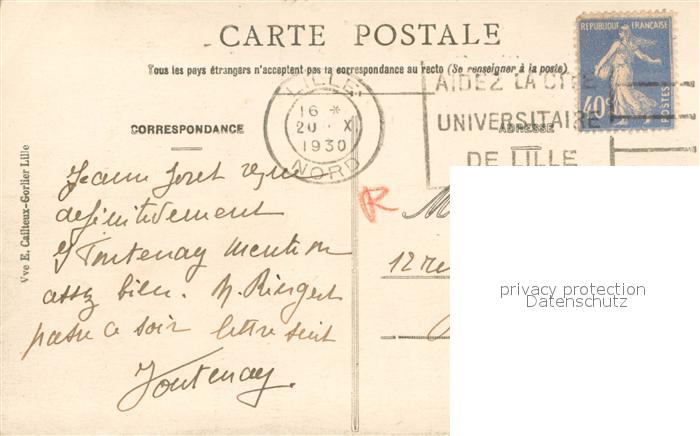 CARTE POSTALE
Tous les pays étrangers n'acceptent pas la correspondance au recto (Se renseigner à la poste)
REPUBLIQUE FRANÇAISE
40c
POSTES
LILLE
16 *
20 XI
1930
NORD
AIDEZ LA CITE
UNIVERSITAIRE
DE LILLE
CORRESPONDANCE
ADRESSE
Vve E. Cailteux-Gorlier Lille
Jeanne
definitivement
Fontenay mention
assez bien. M. Ringert
passe ce soir lettre suit
Fontenay.
R
M
12 rue
privacy protection
Datenschutz